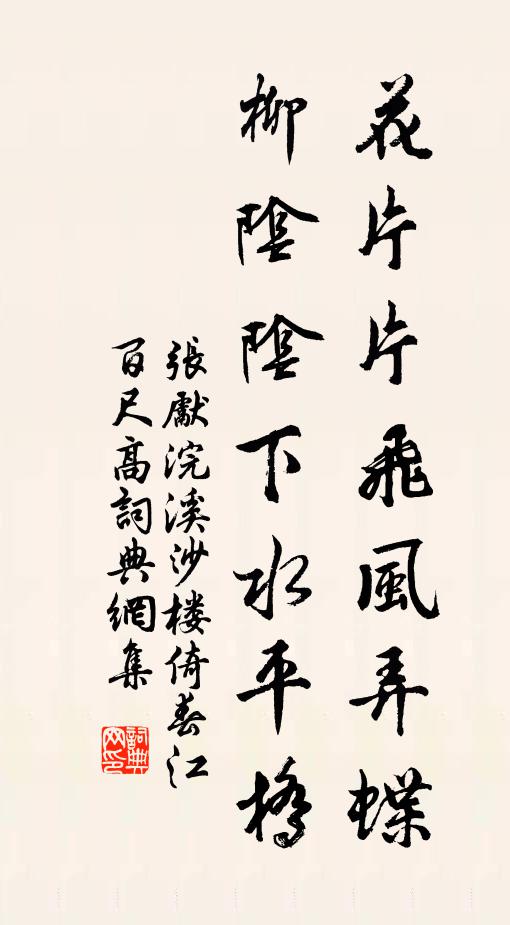 花片片飛風弄蝶
柳陰陰下水平橋
張獻浣溪沙樓倚春江
百尺高詞典網集
詞典網印